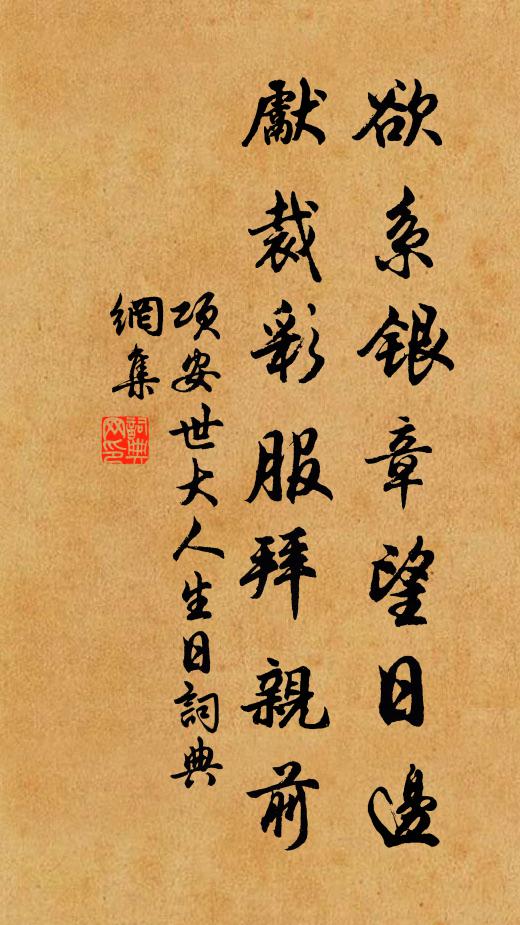 欲系銀章望日邊
獻裁彩服拜親前
項安世大人生日詞典
網集
詞典
网印